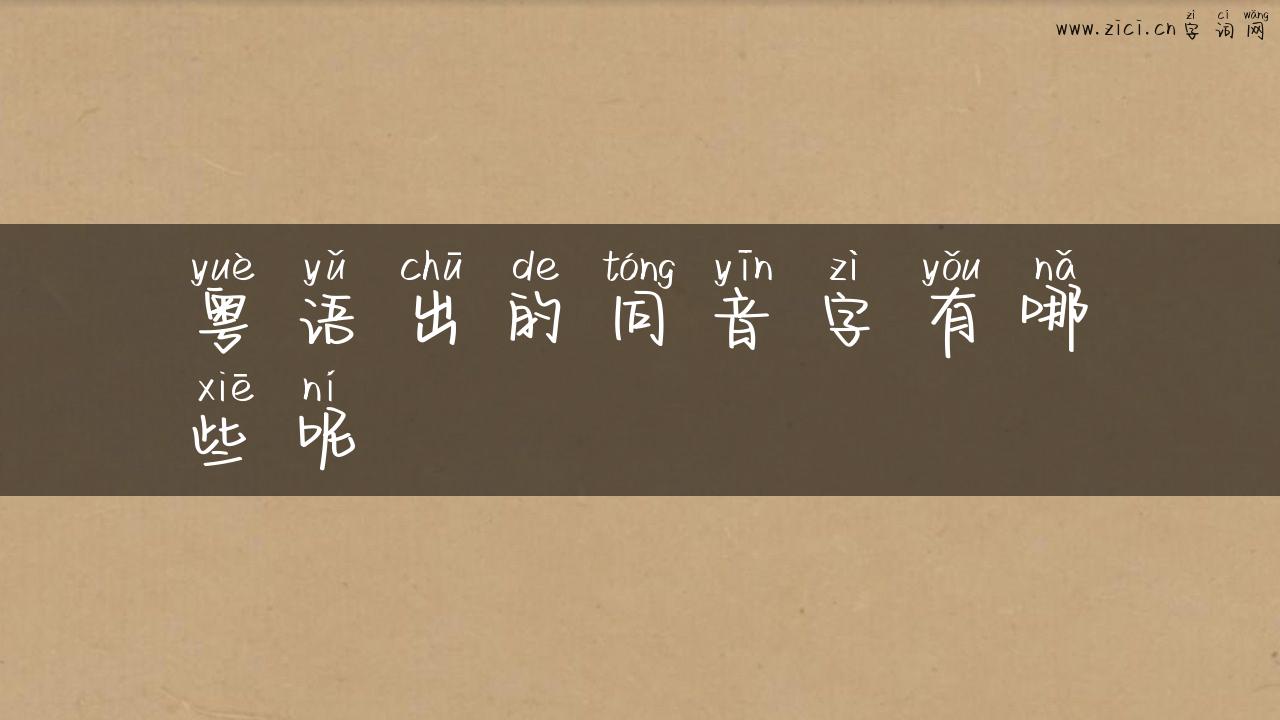 zì cí wǎng
www.zici.cn 字词网
yuè yǔ chū de tóng yīn zì yǒu nǎ
粤语出的同音字有哪
xiē ní
些呢